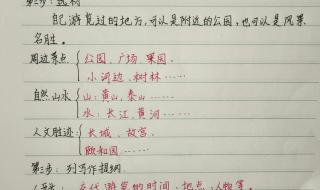 第二步：选材
自己游览过的地方，可以是附近的公园，也可以是风景
名胜。
周边景点 { 公园、广场、果园、
小河边、树林……
自然山水 { 山：黄山、泰山……
水：长江、黄河……
人文胜迹 { 长城、故宫、
颐和园……
第三步：列写作提纲
交代游览的时间、地点、人物等。